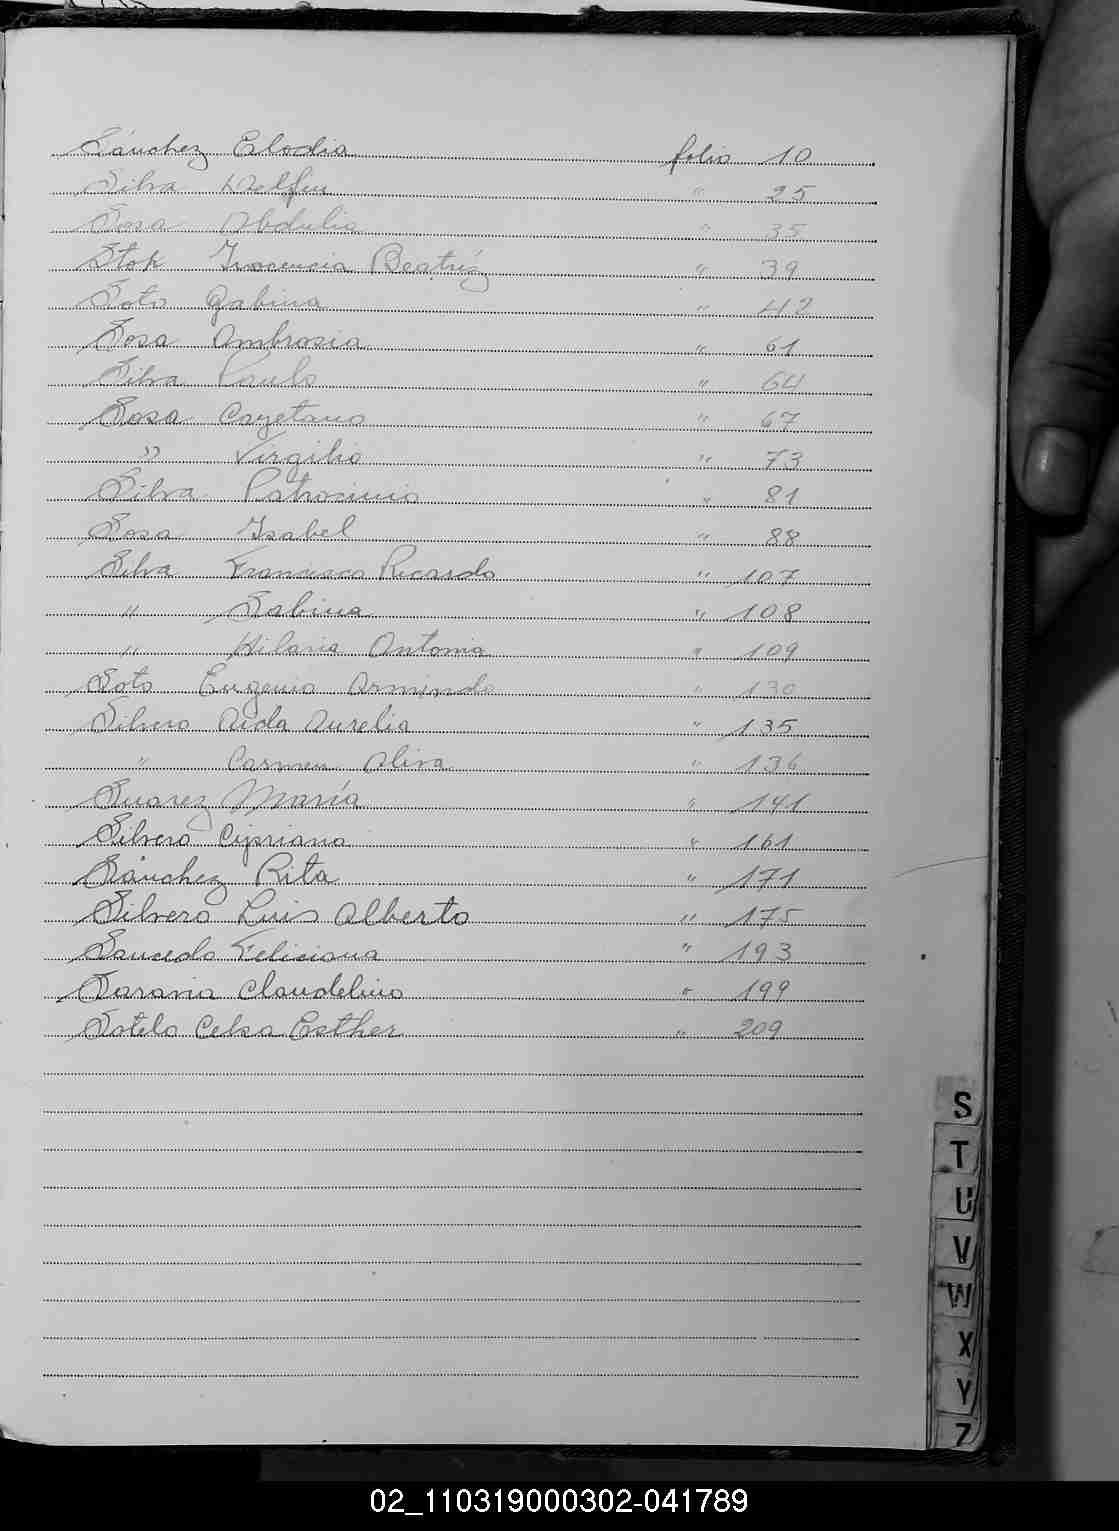 Sánchez Elodia folio 10
Silva Delfin " 25
Sosa Obdulia " 35
Stok Inocencia Beatríz " 39
Soto Gabina " 42
Sosa Ambrosia " 61
Silva Paulo " 64
Sosa Cayetano " 67
" Virgilio " 73
Silva Patrocinio " 81
Sosa Isabel " 88
Silva Francisco Ricardo " 107
" Sabina " 108
" Hilaria Antonia " 109
Soto Eugenio Armindo " 130
Silvero Aida Aurelia " 135
" Carmen Oliva " 136
Suarez María " 141
Silvero Cipriano " 161
Sánchez Rita " 171
Silvero Luis Alberto " 175
Saucedo Feliciana " 193
Saravia Claudelino " 199
Sotelo Celsa Esther " 209
S
T
U
V
W
X
Y
Z
02_110319000302-041789